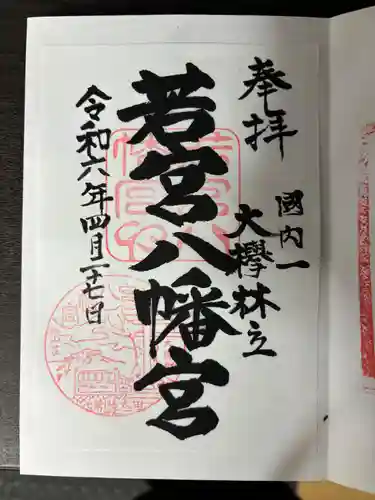 奉拝
國内一
大欅林立
若宮八幡宮
令和六年四月二十七日